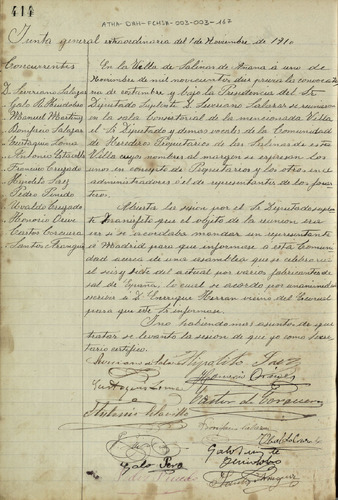 414
ATHA-DAH-FCHSA-003-003-167
Junta general extraordinaria del 1º de Noviembre de 1910
Concurrentes
D. Feveriano Salazar
Manuel Martinez
Bonifacio Salazar
Eustaquio Loma
Antonio
Francisco Crespado
Hipolito Saez
Pedro Pinedo
Ubaldo Crespado
Honorio
Castor Corcuera
Santos Aranguiz
En la Villa de Salinas de Añana a uno de
Noviembre de mil novecientos diez previa la convocato
ria de costumbre y bajo la Presidencia del Sr
Diputado Suplente D. Severiano Salazar se reunieron
en la sala Consistorial de la mencionada Villa
el Sr Diputado y demas vocales de la Comunidad
de Herederos Propietarios de las Salinas de esta
Villa cuyos nombres al margen se expresan los
unos en concepto de Propietarios y los otros en el de
administradores o el de representantes de los
Abierta la sesion por el Sr Diputado suplen
te manifesto que el objeto de la reunion era
ver si se acordaba mandar un representante
a Madrid para que informase a esta Comuni
dad acerca de una asamblea que se celebraria
el seis y siete del actual por varios fabricantes de
sal de España, lo cual se acordo por unanimidad
D. Enrique Herran vecino del Escorial
para que este le informase.
Y no habiendo mas asuntos de que
tratar se levanto la sesion de que yo como Secre
tario certifico.
Severiano Salazar
Hipolito Saez
Eustaquio Loma
Castor de Corcuera
Bonifacio Salazar
Galo
Pedro Pinedo
Santos Aranguiz